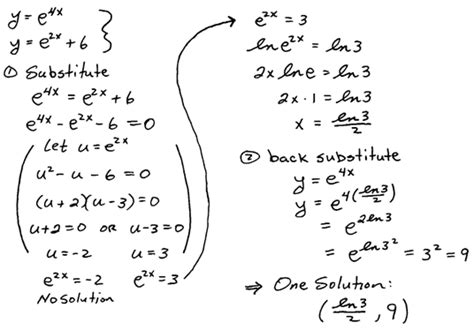 y = e^{4x}
y = e^{2x} + 6 }
① Substitute
e^{4x} = e^{2x} + 6
e^{4x} - e^{2x} - 6 = 0
Let u = e^{2x}
u² - u - 6 = 0
(u + 2)(u - 3) = 0
u + 2 = 0 OR u - 3 = 0
u = -2 u = 3
e^{2x} = -2 e^{2x} = 3
No Solution
e^{2x} = 3
ln e^{2x} = ln 3
2x ln e = ln 3
2x · 1 = ln 3
x = \frac{ln 3}{2}
② back substitute
y = e^{4x}
y = e^{4(\frac{ln 3}{2})}
= e^{2 ln 3}
= e^{ln 3²} = 3² = 9
⇒ One Solution:
(\frac{ln 3}{2}, 9)